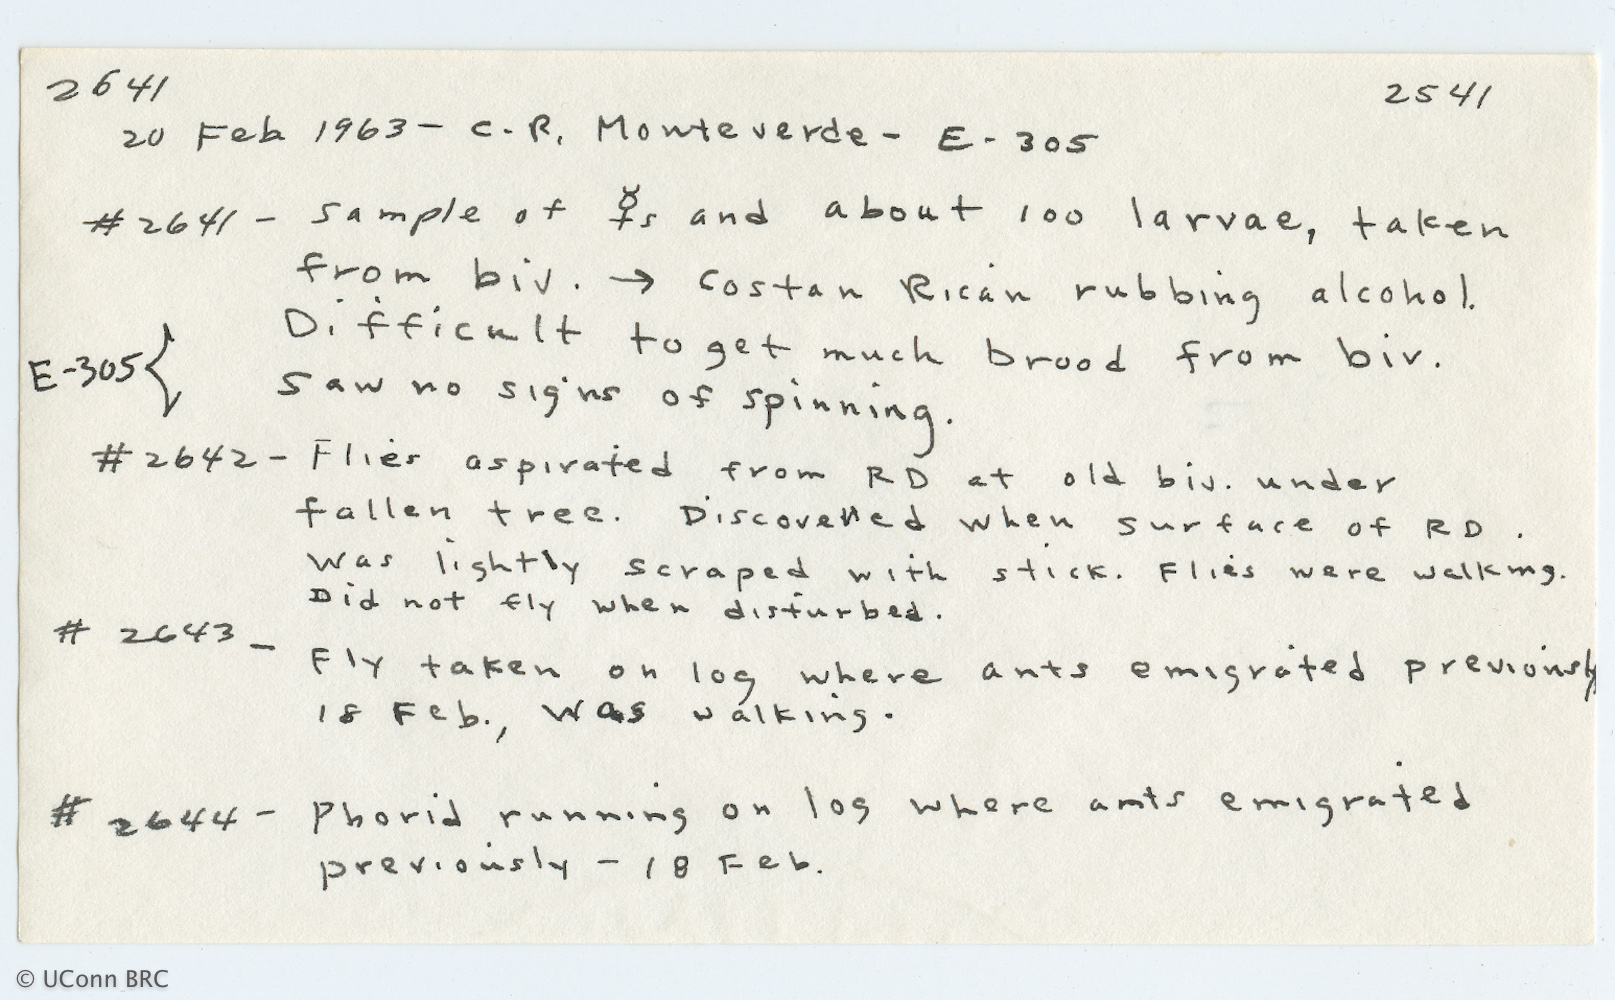 2641 2541
20 Feb 1963 - C.R. Monteverde - E-305
#2641 - Sample of ☿s and about 100 larvae, taken
from biv. → Costan Rican rubbing alcohol.
Difficult to get much brood from biv.
E-305{ Saw no signs of spinning.
#2642 - Flies aspirated from RD at old biv. under
fallen tree. Discovered when surface of RD.
was lightly scraped with stick. Flies were walking.
Did not fly when disturbed.
# 2643 -
Fly taken on log where ants emigrated previously
18 Feb., was walking.
# 2644 - Phorid running on log where ants emigrated
previously - 18 Feb.
© UConn BRC